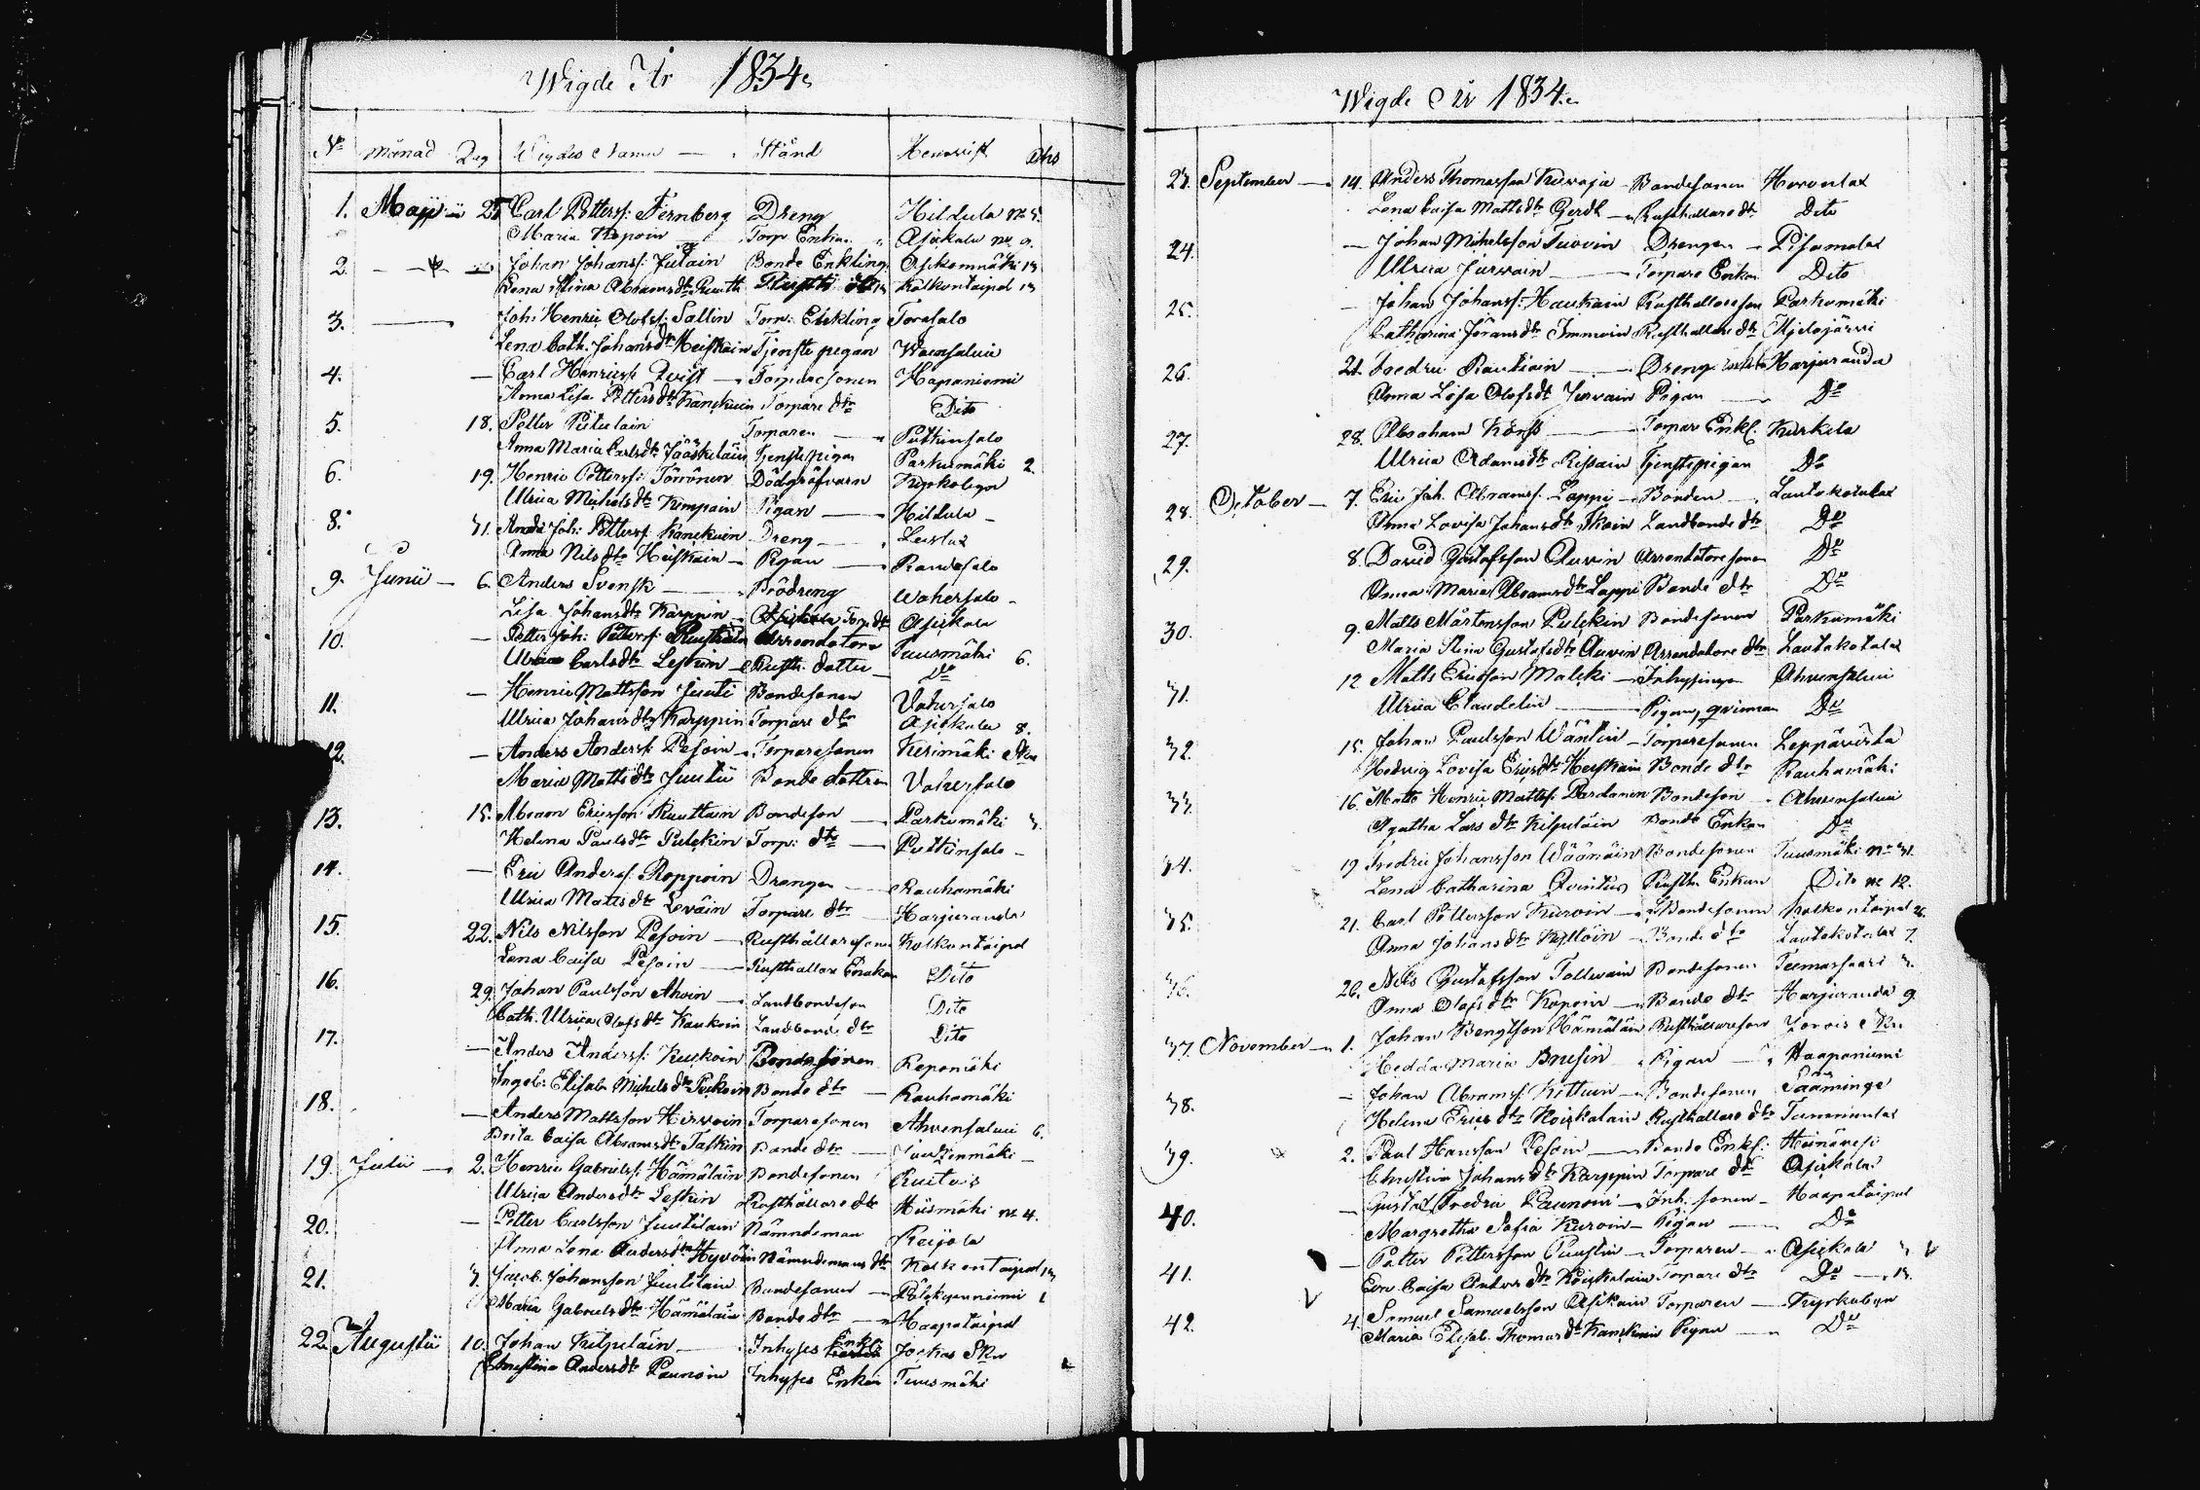 Wigde År 1834
No Månad Dag Wigdes Namn Stånd Hemvist
1. Maji 25 Carl Petterss: Fernberg Dreng Hildula no 5.
Maria Kopoin Torp. Enkan Asikala no 9.
2. Johan Johanss: Julain Bonde Enkling
Lena Stina Abramsdtr Ruuth Kolkontaipal 13
3. Joh: Henric Olofss: Sallin Torp. Enkling Torasalo
Lena Cath: Johansdtr Heiskain Tjenste pigan
4. Carl Henricss: Qvist Torparesonen Haponiemi
Anna Lisa Pettersdtr Kanckuin Torpare dtr Dito
5. 18. Petter Pitulain Torparen Putkinsalo
Anna Maria Carlsdtr Jääskeläin Tjenstepigan Parkumäki 2.
6. 19. Henric Petterss: Törrönen Dödgräfvaren Kyrkobyn
Ulrica Michelsdtr Kimpain Pigan Hildula
8. 31. And: Joh: Petterss: Kanckuin Dreng
Anna Nilsdtr Heiskain Pigan Randasalo
9. Junii 6. Anders Svensk Wahersalo
Lisa Johansdtr Karppin Torp dtr Asikala
10. Petter Joh: Petterss: Arrendatore Tuusmäki 6.
Ulrica Carlsdtr Leskin Rusth. dotter Do
11. Henric Mattsson Juuti Bondesonen Vahersalo
Ulrica Johansdtr Karppin Torpare dtr Asikala 8.
12. Anders Anderss: Pesoin Torparesonen Kerimäki
Maria Mattsdtr Juutii Bonde dottren Vahersalo
13. 15. Abram Ericsson Ruuttain Bondeson Parkumäki 3.
Helena Paulsdtr Pulckin Torp: dtr Putkinsalo
14. Eric Anderss: Roppoin Drengen Rauhamäki
Ulrica Mattsdtr Leväin Torpare dtr Harjuranda
15. 22. Nils Nilsson Pesoin Rusthållaresonen Kolkontaipal
Lena Caisa Pesoin Rusthallare Enkan Dito
16. 29. Johan Paulsson Ahvoin Landbondeson Dito
Cath. Ulrica Olofsdtr Kaukoin Landbonde dtr Dito
17. Anders Anderss: Kuckoin Bondesonen Repomäki
Ingeb: Elisab: Michelsdtr Puckoin Bonde dtr Rauhamäki
18. Anders Mattsson Hirvoin Torparesonen Ahvensalmi 6.
Brita Caisa Abramsdtr Talkin Bonde dtr
19. Julii 2. Henric Gabrielss: Hämäläin Bondesonen
Ulrica Andersdtr Leskin Rusthållare dtr Hiismäki no 4.
20. Petter Carlsson Juutilain Nämndeman Reijola
Anna Lena Andersdtr Hyvöin Nämndemans dtr Kolkontaipal 13
21. 3. Jacob Johansson Juutilain Bondesonen
Maria Gabrielsdtr Hämäläin Bonde dtr Haapataipal
22. Augustii 10. Johan Kilpeläin Inhyses Enkl: Jockas Skn
Christina Andersdtr Paunoin Inhyses Enkan Tuusmäki
Wigde År 1834
23. September 14. Anders Thomasson Kurvaja Bondesonen
Lena Caisa Mattsdtr Gerdt Rusthållare dtr Dito
24. Johan Michelsson Tuovin Drengen Pisamalax
Ulrica Jurvain Torpare Enkan Dito
25. Johan Johanss: Haukain Rusthallareson Parkumäki
Catharina Göransdtr Immoin Rusthallare dtr
26. 21. Fredric Rautiain Dreng Harjuranda
Anna Lisa Olofsdtr Jurvain Pigan Do
27. 28. Abraham Torpar Enkl. Kurkila
Ulrica Adamsdtr Tjenstepigan Do
28. October 7. Eric Joh: Abramss: Lappi Bonden Lautakotalax
Anna Lovisa Johansdtr Landbonde dtr Do
29. 8. David Gustafsson Auvin Arrendatoresonen Do
Anna Maria Abramsdtr Lappi Bonde dtr Do
30. 9. Matts Mårtensson Pulckin Bondesonen Parkumäki
Maria Stina Gustafsdtr Auvin Arrendatore dtr Lautakotalax
31. 12 Matts Ericsson Malcki Inhysingen Ahvensalmi
Ulrica Claudelin Pigan, qvinnan Do
32. 15. Johan Paulsson Wäntin Torparesonen Leppävirta
Hedvig Lovisa Ericsdtr Heiskain Bonde dtr Rauhamäki
33. 16. Matts Henric Mattss: Pardanen Bondeson Ahvensalmi
Agatha Lars dtr Kilpeläin Bonde Enkan Do
34. 19 Fredric Johansson Wäänäin Bondesonen Tuusmäki no 31.
Lena Catharina Qvintus Rusth. Enkan Dito no 12.
35. 21. Carl Pettersson Kurvoin Bondesonen Kolkontaipal
Anna Johansdtr Kyllöin Bonde dtr Lautakotalax 7.
36. 26. Nils Gustafsson Tollivain Bondesonen Tiemassaari 3.
Anna Olofsdtr Kopoin Bonde dtr Harjuranda 9.
37. November 1. Johan Bengtsson Hämäläin Rusthållareson Jorois Skn
Hedda Maria Brusin Pigan Haaponiemi
38. Johan Abramss: Kettuin Bondesonen Sääminge
Helena Ericsdtr Koickalain Rusthållare dtr
39. 2. Paul Hansson Pesoin Bonde Enkl: Heinävesi
Christina Johansdtr Karppin Torpare dtr Asikala
40. Gustaf Fredric Paunoin Inh. sonen Haapataipal
Margretha Sofia Kurvin Pigan Do
41. Petter Pettersson Puustin Torparen Asikala 3
Eva Caisa Andersdtr Koickalain Torpare dtr Do 13.
42. 4. Samuel Samuelsson Asikain Torparen Kyrkobyn
Maria Elisab. Thomasdtr Kanckuin Pigan Do